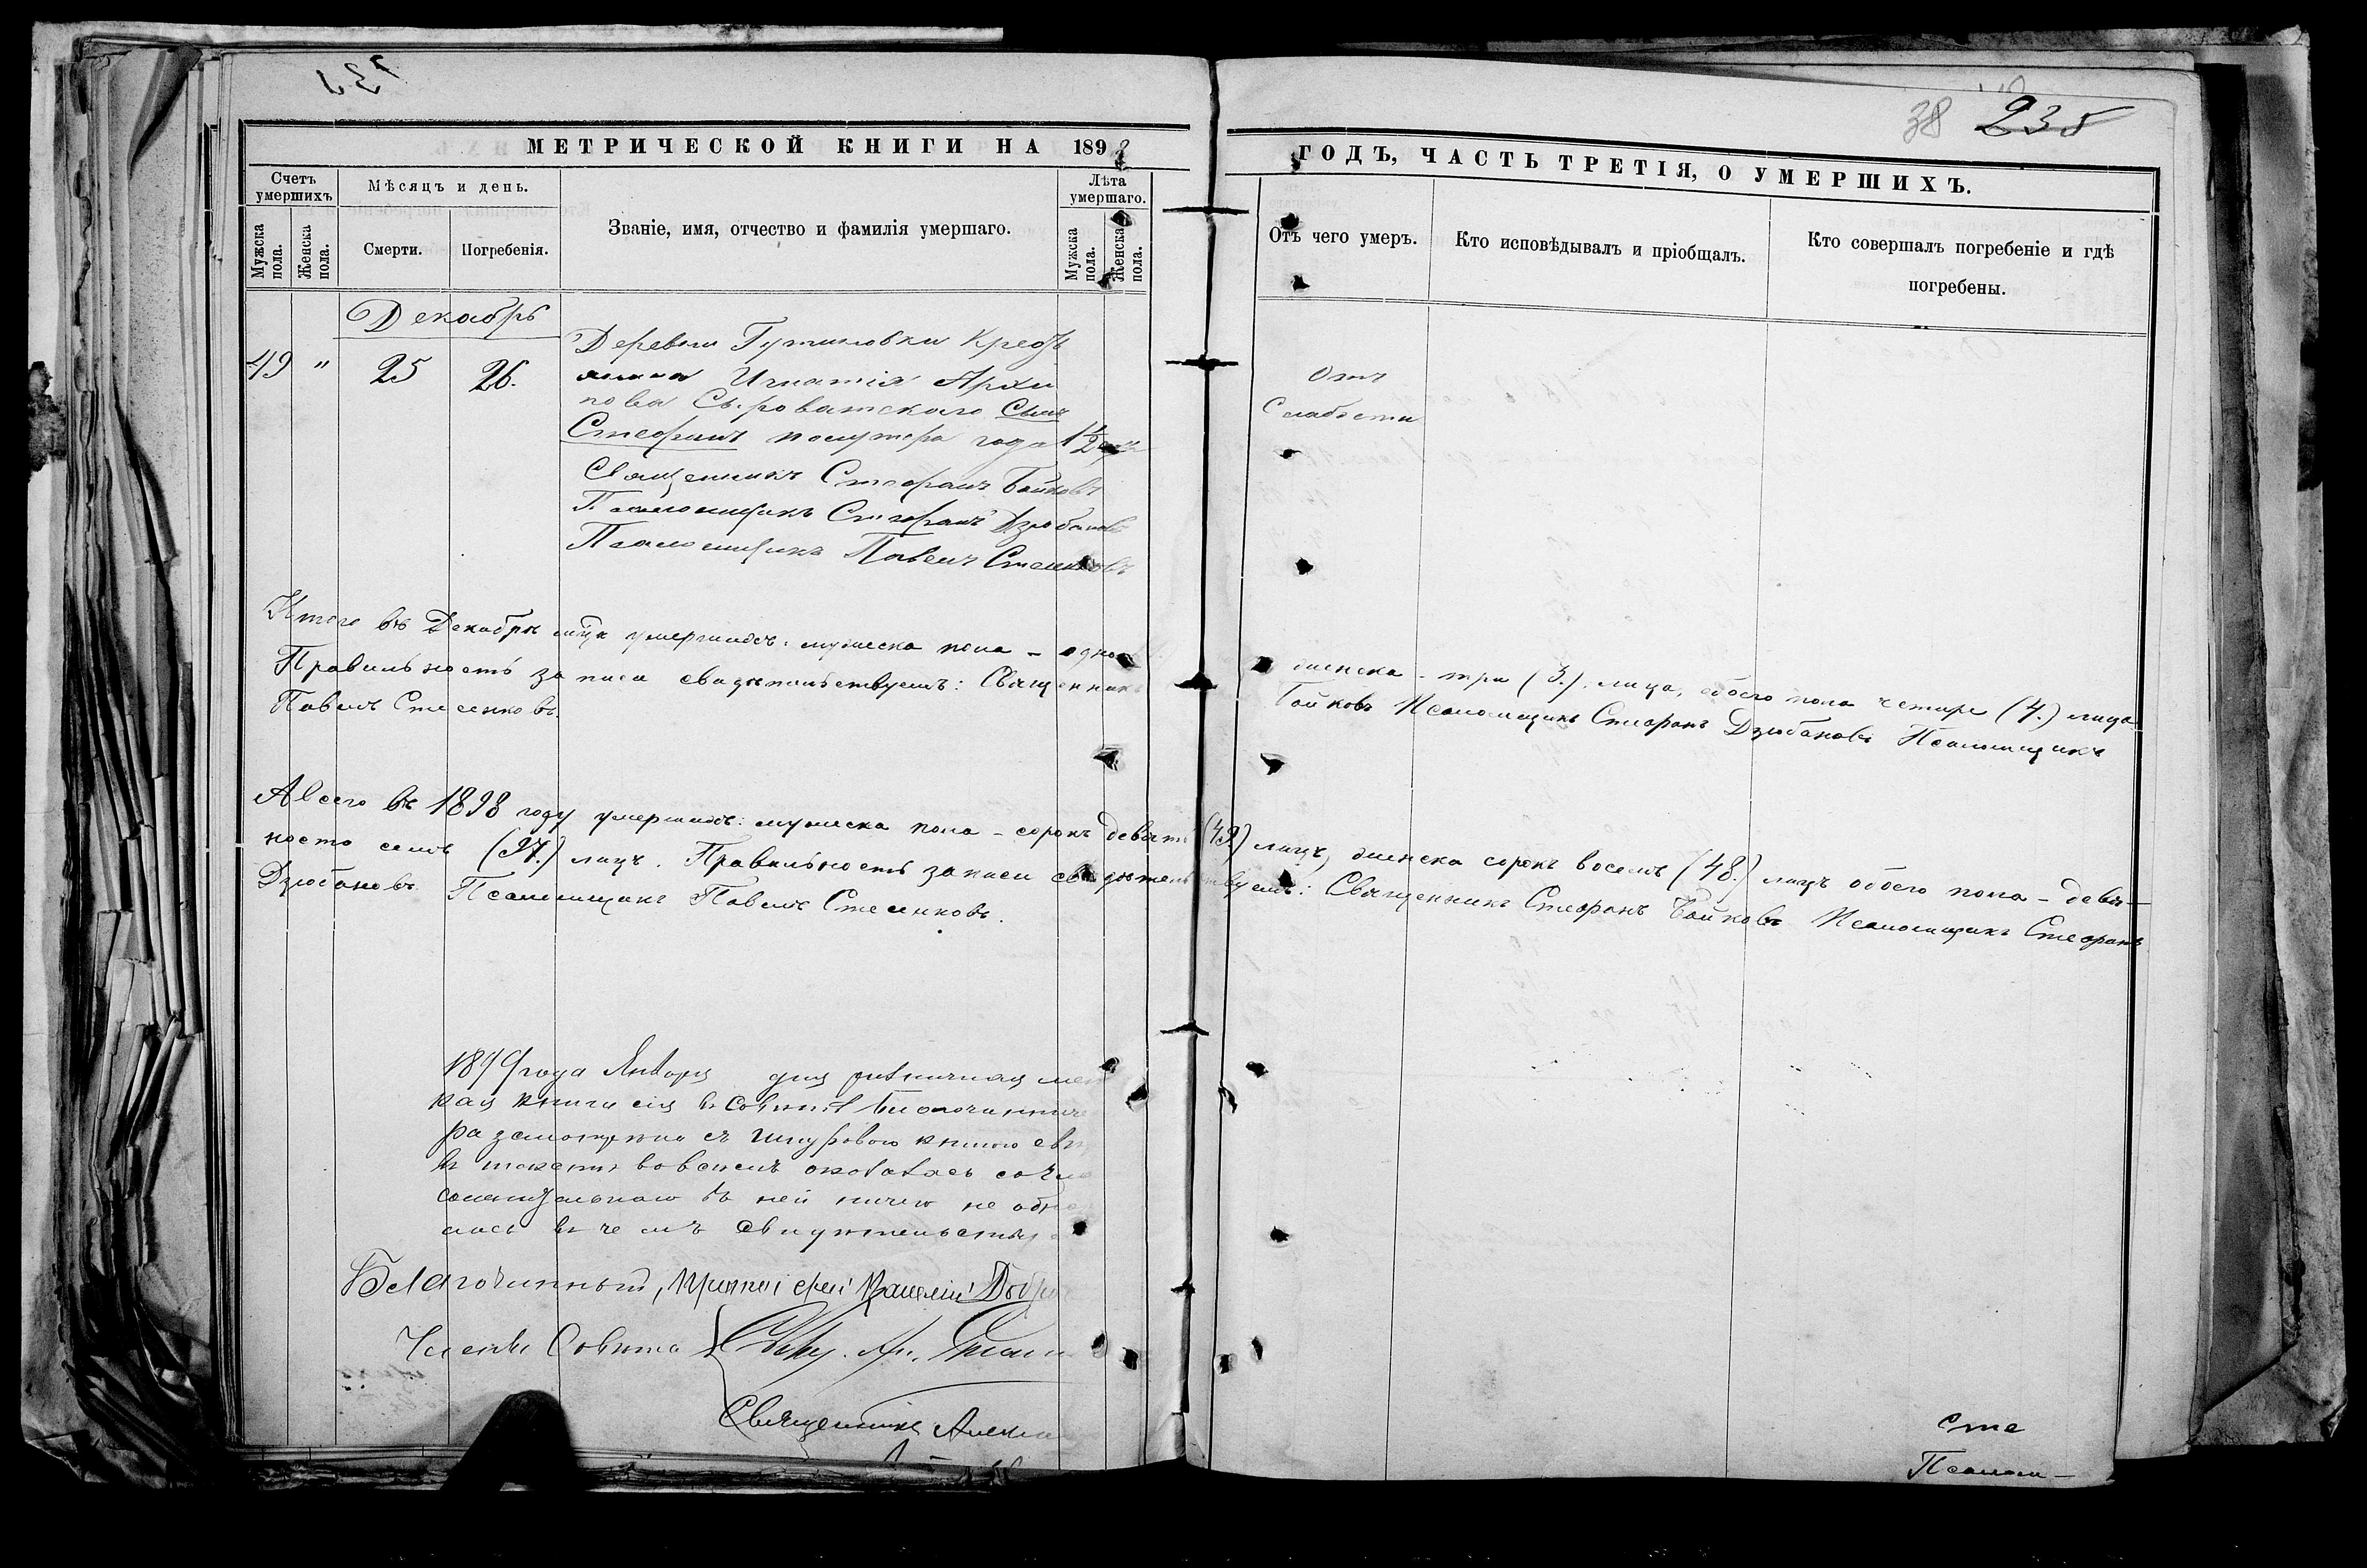 38 235
МЕТРИЧЕСКОЙ КНИГИ НА 1898
ГОДЪ, ЧАСТЬ ТРЕТІЯ, О УМЕРШИХЪ.
Счетъ умершихъ.
Мужска пола.
Женска пола.
Мѣсяцъ и день.
Смерти.
Погребенія.
Званіе, имя, отчество и фамилія умершаго.
Лѣта умершаго.
Мужска пола.
Женска пола.
Отъ чего умеръ.
Кто исповѣдывалъ и пріобщалъ.
Кто совершалъ погребеніе и гдѣ
погребены.
Декабрь
49 " 25 26.
Деревни Кресть
янина Игнатія Архи
пова Сыроватскаго Сынъ
Стефанъ полутора года 1½
Отъ
Слабости
Священникъ Стефанъ Бойковъ
Псаломщикъ Стефанъ Дзюбановъ
Псаломщикъ Павелъ Стеенковъ
Итого въ Декабрѣ м-цѣ умершихъ: мужеска пола – одно
женска – три (3.) лица, обоего пола четыре (4.) лица
Правильность записи свидѣтельствуемъ: Священникъ
Бойковъ Псаломщикъ Стефанъ Дзюбановъ Псаломщикъ
Павелъ Стеенковъ.
А всего въ 1898 году умершихъ: мужеска пола – сорокъ девять (49.) лицъ, женска сорокъ восемь (48.) лицъ обоего пола – девя-
носто семь (97.) лицъ. Правильность записи свидѣтельствуемъ: Священникъ Стефанъ Бойковъ Псаломщикъ Стефанъ
Дзюбановъ. Псаломщикъ Павелъ Стеенковъ.
1899 года Января дня
кая книга сія въ Совѣтѣ Благочинниче
ра съ шнуровою книгою сви
во всемъ оказалась
въ ней ничего не обна
лось въ чемъ свидѣтельству
Благочинный, протоіерей Василій
Члены Совѣта
Священникъ
Сте
Псалом-